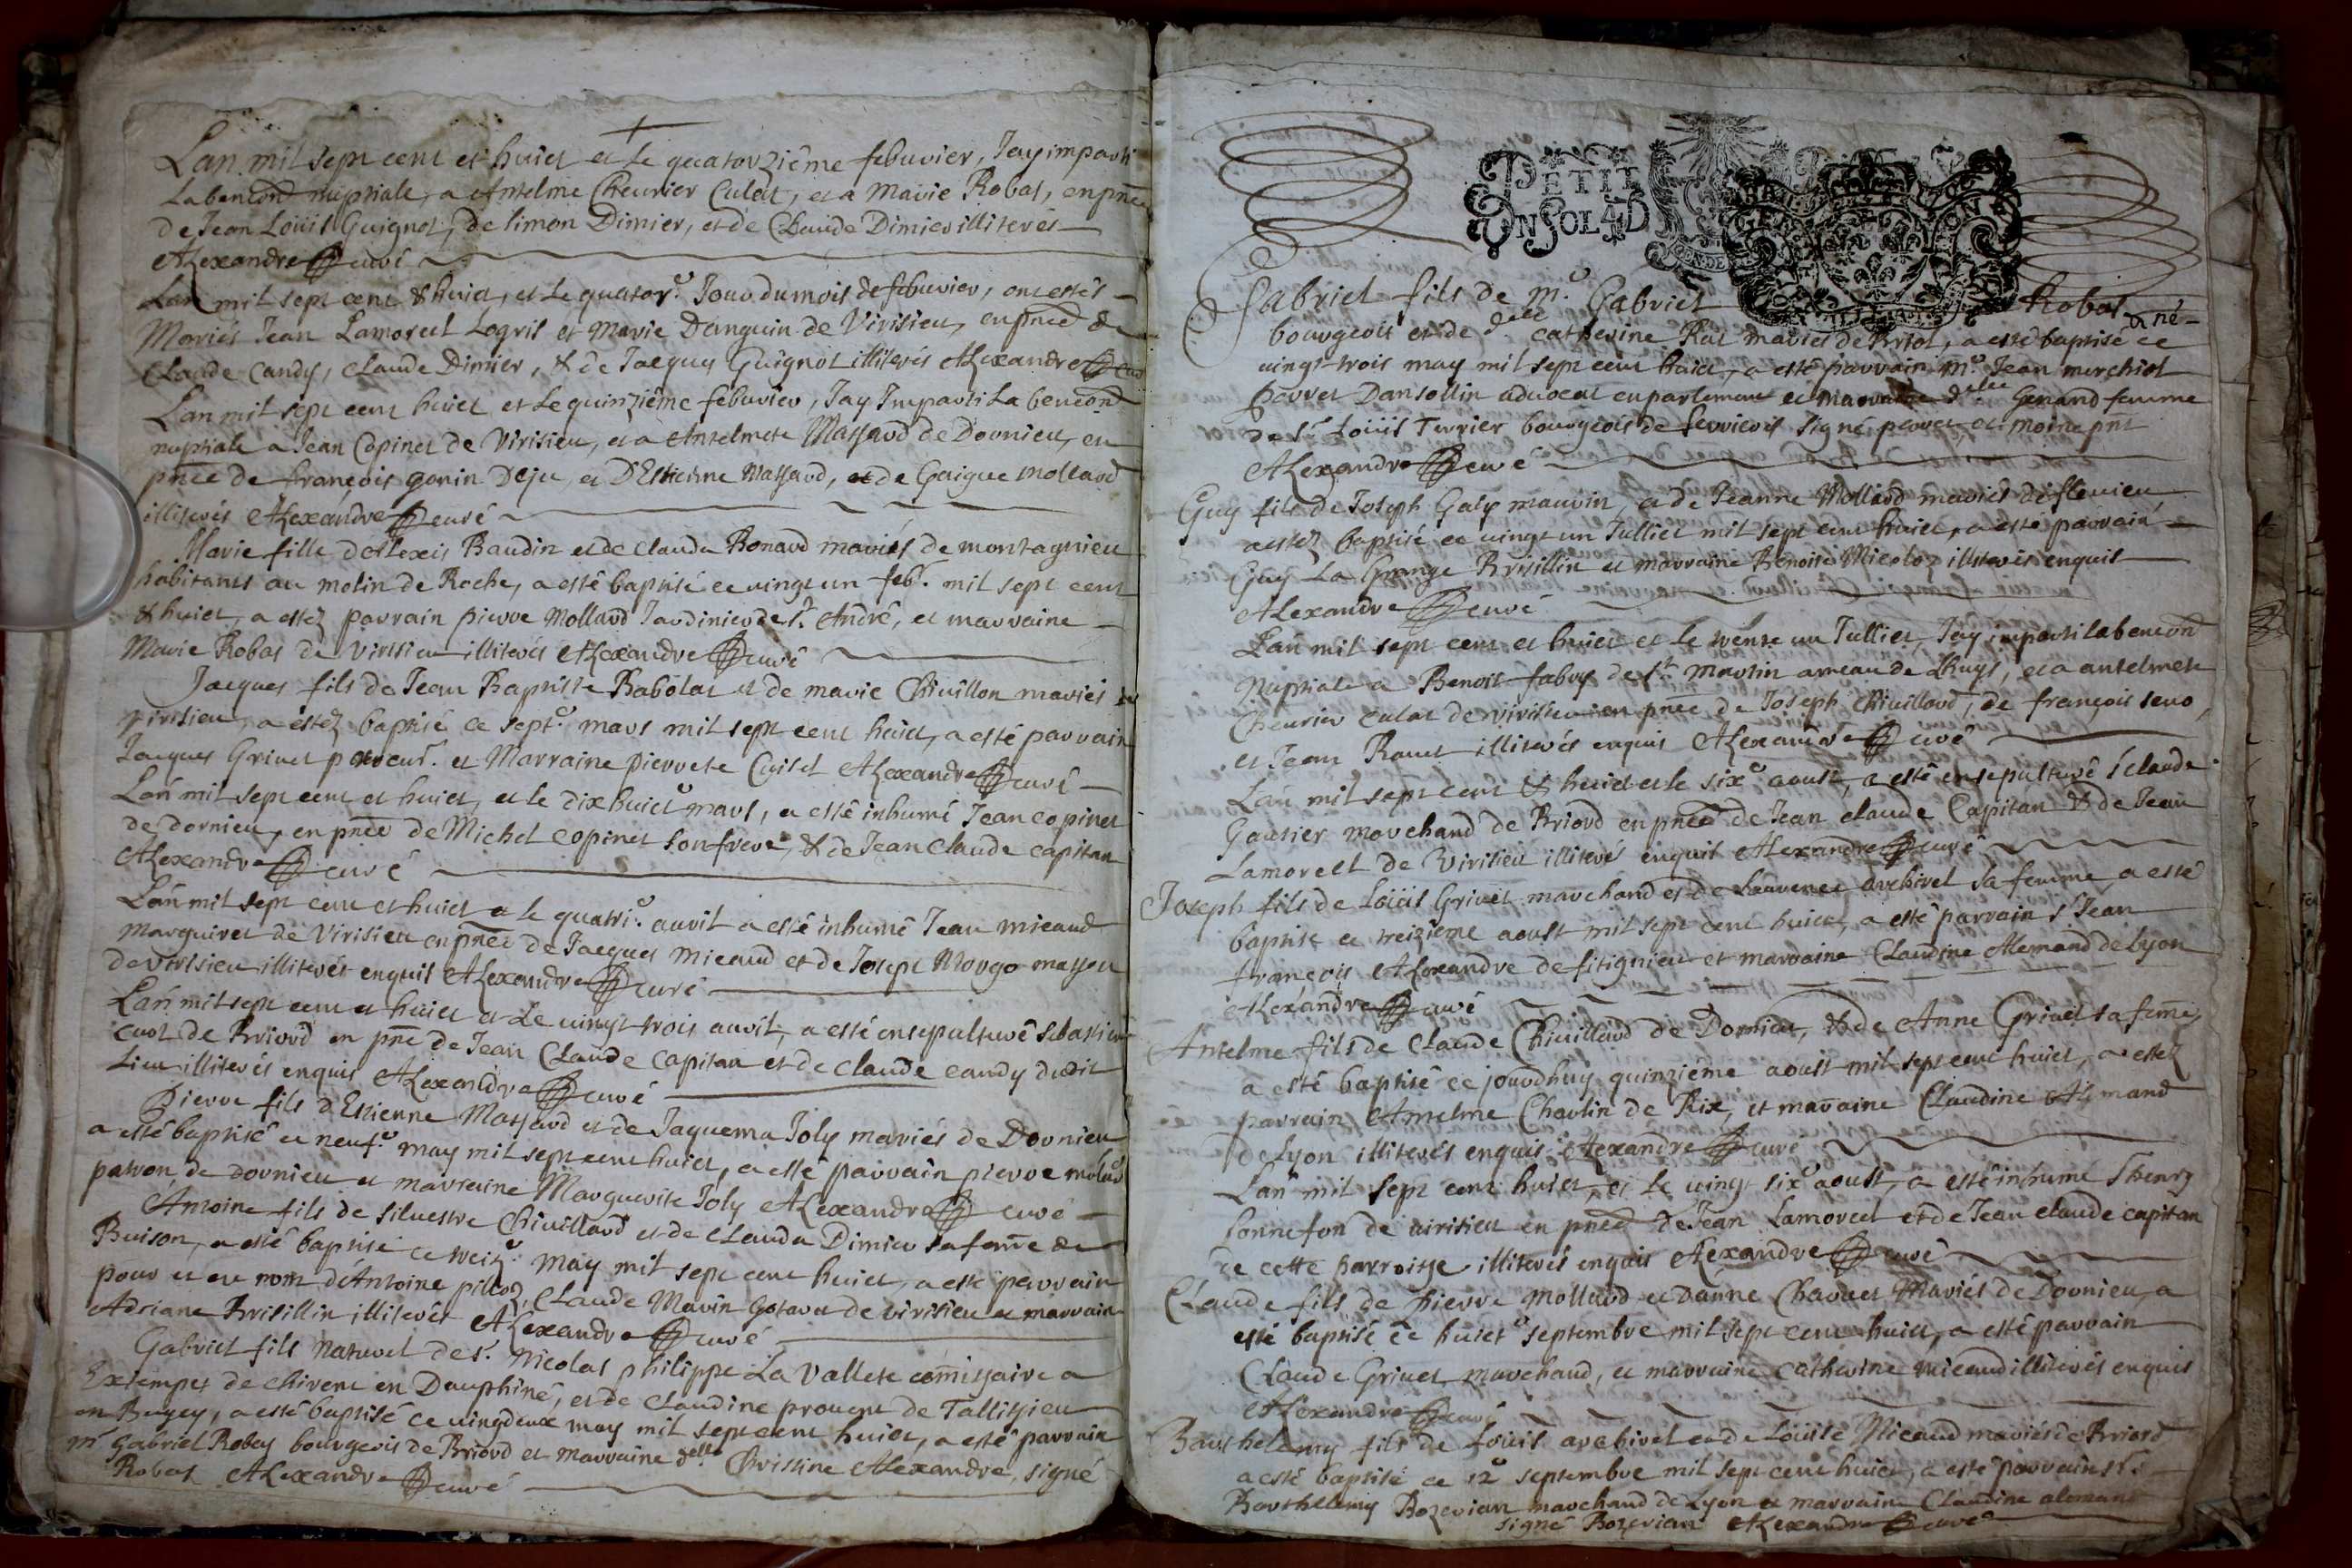 Lan mil sept cent et huict et le quatorziême febuvier, Jay imparti
La bencôn nuptiale, a Antelme Cheurier Culat, et a Marie Robas, en pnce
de Jean Loüis Guignot, de Simon Dimier, et de Claude Dimier illiterés
Alexandre curé
Lan mil sept cent & huict, et le quator.e Jour du mois de febuvier, ont estés
Mariés Jean Lamorect Logris et Marie Danguin de Virisieu, en pnce de
Claude Candy, Claude Dimier, & de Jacques Guignot illiterés Alexandre curé
Lan mil sept cent huict et le quinziême febuvier, Jay Imparti La bencôn
nuptiale a Jean Copinet de Virisieu, et a Antelmete Massard de Dornieu, en
pnce de françois gonin Deju, et D'Estienne Massard, et de Gaigue Mollard
illiterés Alexandre curé
Marie fille d'Alexis Baudin et de Clauda Bonard mariés de montagnieu
habitants au molin de Roche, a esté baptisé ce vingt un feb.r mil sept cent
& huict, a estez parrain pierre Mollard Jardinier de St. André, et marraine
Marie Robas de Virisieu illiterés Alexandre curé
Jacques fils de Jean Baptiste Babolat et de marie Chivillon mariés de
virisieu, a estez baptisé ce sept.e mars mil sept cent huict, a esté parrain
Jacques Grivet procur.r et Marraine pierrete Cuilet Alexandre curé
Lan mil sept cent et huict, et le dix huict.e mars, a esté inhumé Jean copinet
de dornieu, en pnce de Michel copinet son frere, & de Jean Claude capitan
Alexandre curé
Lan mil sept cent et huict et le quatri.e avril a esté inhumé Jean micaud
Marguiret de Virisieu en pnce de Jacques Micaud et de Joseph Mongo masson
de virisieu illiterés enquis Alexandre curé
Lan mil sept cent et huict et Le vingt trois avril, a esté ensepulturé Sebastien
cuot de Briord en pnce de Jean Claude capitan et de claude candy dudit
Lieu illiterés enquis Alexandre curé
Pierre fils d'Estienne Massard et de Jaquema Joly mariés de Dornieu
a esté baptisé ce neuf.e may mil sept cent huict, a esté parrain pierre molard
patron, de dornieu et marraine Marguerite Joly Alexandre curé
Antoine fils de silvestre Chivillard et de Clauda Dimier sa feme de
Buison, a esté baptisé ce treiz.e may mil sept cent huict, a esté parrain
pour et au nom d'Antoine pilloz, Claude Marin Gotaret de virisieu et marraine
Adriane Brisillin illiterés Alexandre curé
Gabriel fils naturel de s.r Nicolas philippe La Vallete comissaire a
Exiempes de chirent en Dauphiné, et de Claudine prouent de Tallissieu
en Bugey, a esté baptisé ce vingdeux may mil sept cent huict, a esté parrain
m.r Gabriel Robas bourgeois de Briord et marraine delle Christine Alexandre, signé
Robas Alexandre curé
PETIT
UN SOL 4D
Gabriel fils de m.e Gabriel Robas
bourgeois et de delle catherine Rat mariés de Briord, a esté baptisé ce
vingt trois may mil sept cent huict, a esté parrain m.e Jean murchiot
perret Dansollin advocat en parlement et marraine delle Genand femme
de s.r Loüis Terrier bourgeois de Serrieres signé perret et moine pnt
Alexandre curé
Guy fils de Joseph Galy mauvin, et de Jeanne Mollard mariés de flevieu
a estez baptisé ce vingt un Julliet mil sept cent huict, a esté parrain
Guy La Grange Brisillin et marraine Benoite Micoloz illiterés enquis
Alexandre curé
Lan mil sept cent et huict et le trente un Julliet, Jay imparti la bencôn
Nuptiale a Benoit fabry de st Martin ameau de Lhuys, et a antelmete
Cheurier culat de virisieu en pnce de Joseph Chivillard, de françois seuo,
et Jean Ravet illiterés enquis Alexandre curé
Lan mil sept cent & huict et le six.e aoust, a esté ensepulturé s.r claude
Gautier marchand de Briord en pnce de Jean claude Capitan & de Jean
Lamorelt de Virisieu illiterés enquis Alexandre curé
Joseph fils de Loüis Grivet marchand et de Laurence archirel sa femme a esté
baptisé ce treiziême aoust mil sept cent huict, a esté parrain s.r Jean
françois Alexandre de fitignieu et marraine Claudine Alemand de Lyon
Alexandre curé
Antelme fils de Claude Chivillard de Dornieu, & de Anne Grivet sa feme,
a esté baptisé ce jourdhuy quinziême aoust mil sept cent huict, a estez
parrain Antelme Charlin de Rix, et marraine Claudine Alemand
de Lyon illiterés enquis Alexandre curé
Lan mil sept cent huict, et le vingt six.e aoust, a esté inhumé s.r henry
bonnefon de virisieu en pnce de Jean Lamorect et de Jean claude capitan
de cette parroisse illiterés enquis Alexandre curé
Claude fils de pierre Mollard et D'anne Chavuet Mariés de Dornieu, a
esté baptisé ce huict.e septembre mil sept cent huict, a esté parrain
Claude Grivet marchand, et marraine catherine micaud illiterés enquis
Alexandre curé
Barthelemy fils de Loüis archirel et de Loüise Micaud mariés de Briord
a esté baptisé ce 12e septembre mil sept cent huict, a esté parrain s.r
Barthelemy Bozerian marchand de Lyon et marraine Claudine alemand
signé Bozerian Alexandre curé